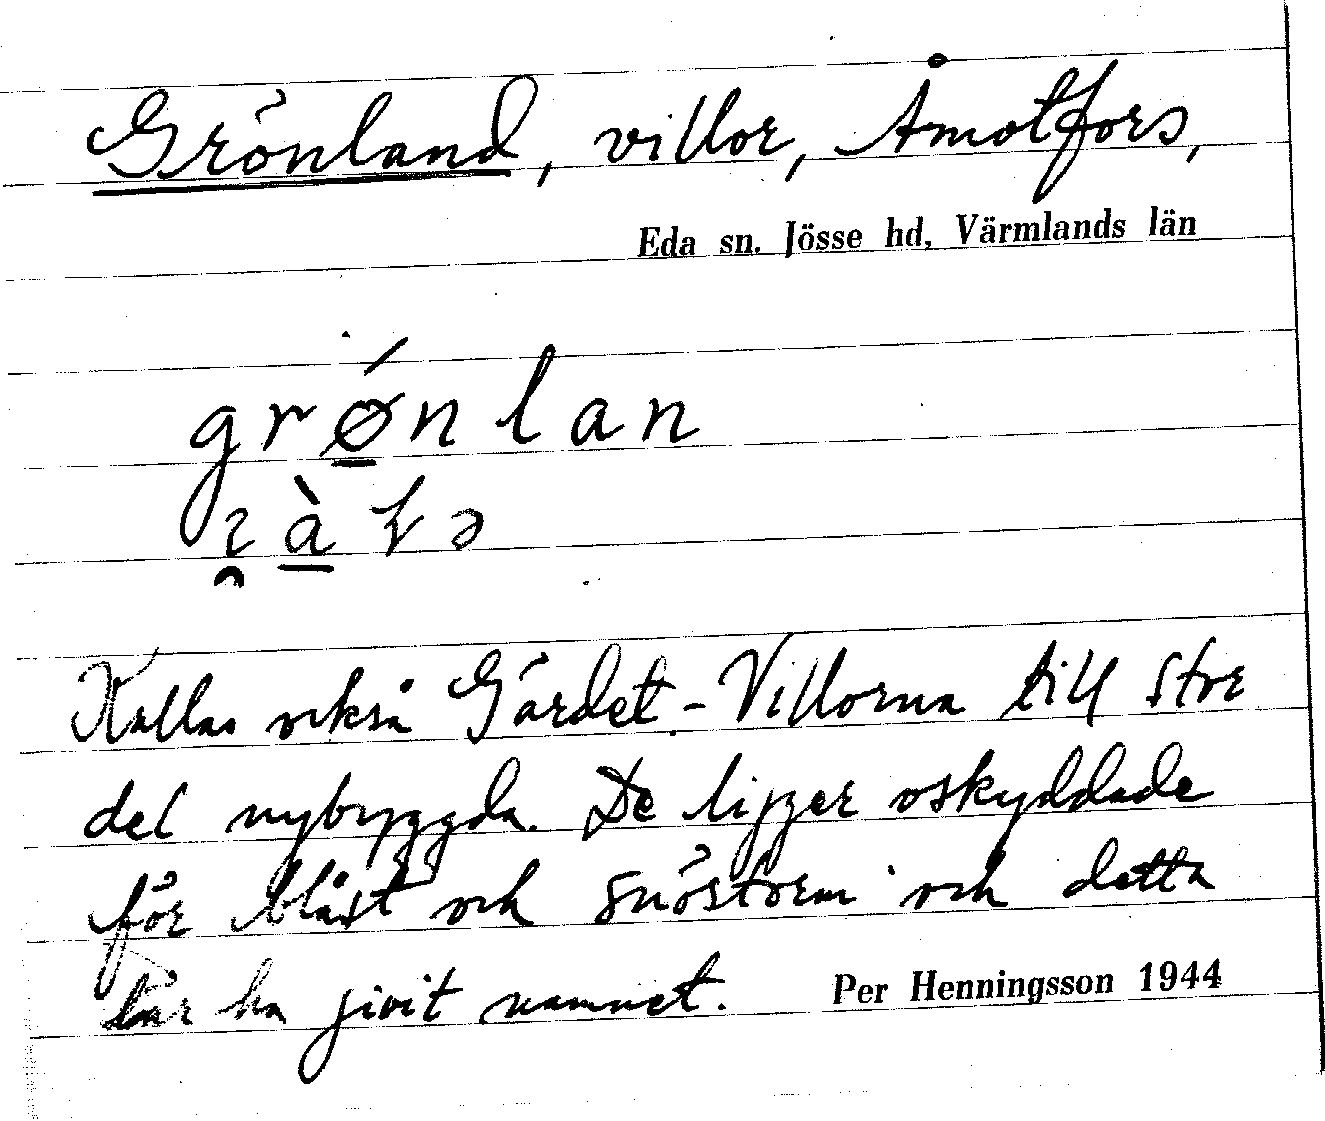 Grönland, villor, Åmotfors,
Eda sn. Jösse hd, Värmlands län
grǿnlan
Kallas också Gärdet. - Villorna till stor
del nybyggda. De ligger oskyddade
för blåst och snöstorm och detta
lär ha givit namnet.
Per Henningsson 1944